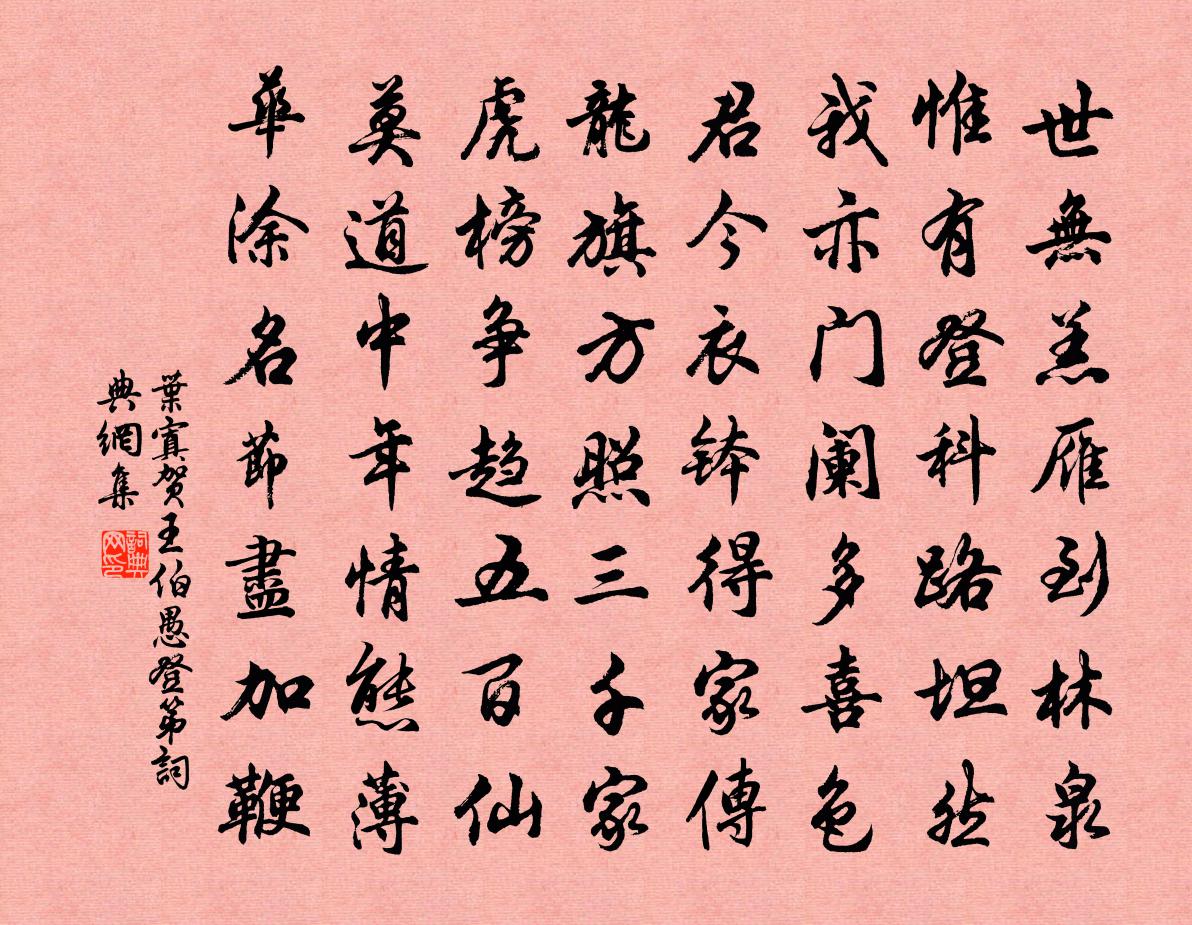 世無羔雁到林泉
惟有登科路坦然
我亦门阑多喜色
君今衣钵得家傳
龍旗方照三千家
虎榜争趋五百仙
莫道中年情態薄
華涂名節盡加鞭
葉寘贺王伯愚登第詞
典網集
詞典
网印